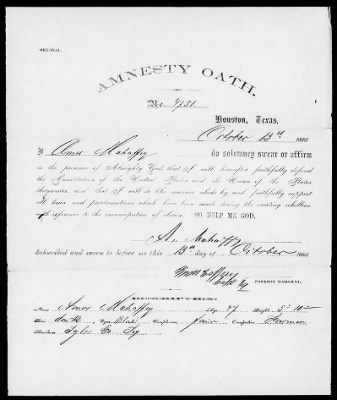 ORIGINAL.
AMNESTY OATH.
No. 4731
Houston, Texas,
October 13th 1865
I Amos Mahaffy do solemnly swear or affirm
in the presence of Almighty God, that I will henceforth faithfully defend
the Constitution of the United States and the Union of the States
thereunder, and that I will in like manner abide by and faithfully support
all laws and proclamations which have been made during the existing rebellion
with reference to the emancipation of slaves. SO HELP ME GOD.
A. Mahaffy
Subscribed and sworn to before me this 13th day of October 1865
PROVOST MARSHAL.
Name Amos Mahaffy Age 47 Height 5
Hair Dark Eyes Complexion Occupation Farmer
Tyler Co.